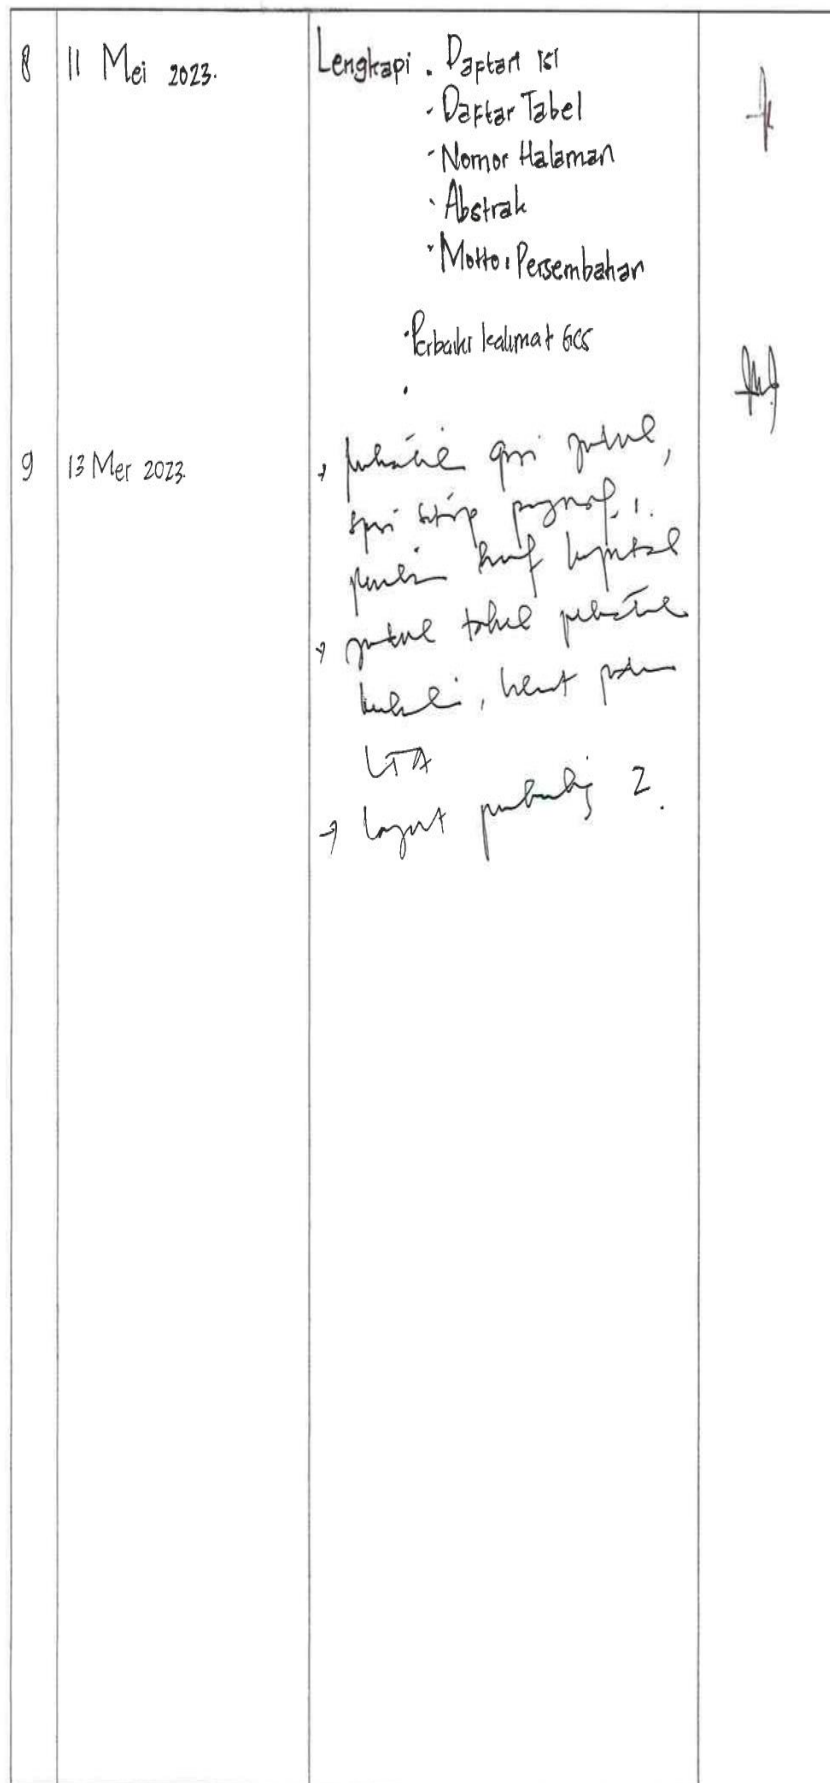 8 11 Mei 2023. Lengkapi . Daftar Isi
- Daftar Tabel
- Nomor Halaman
- Abstrak
- Motto, Persembahan
- Perbaiki kalimat GCS
9 13 Mei 2023. → perbaiki judul,
spasi setiap paragraf,
huruf kapital
→ judul tabel perbaiki
kembali,
LTA
→ lanjut pembimbing 2.